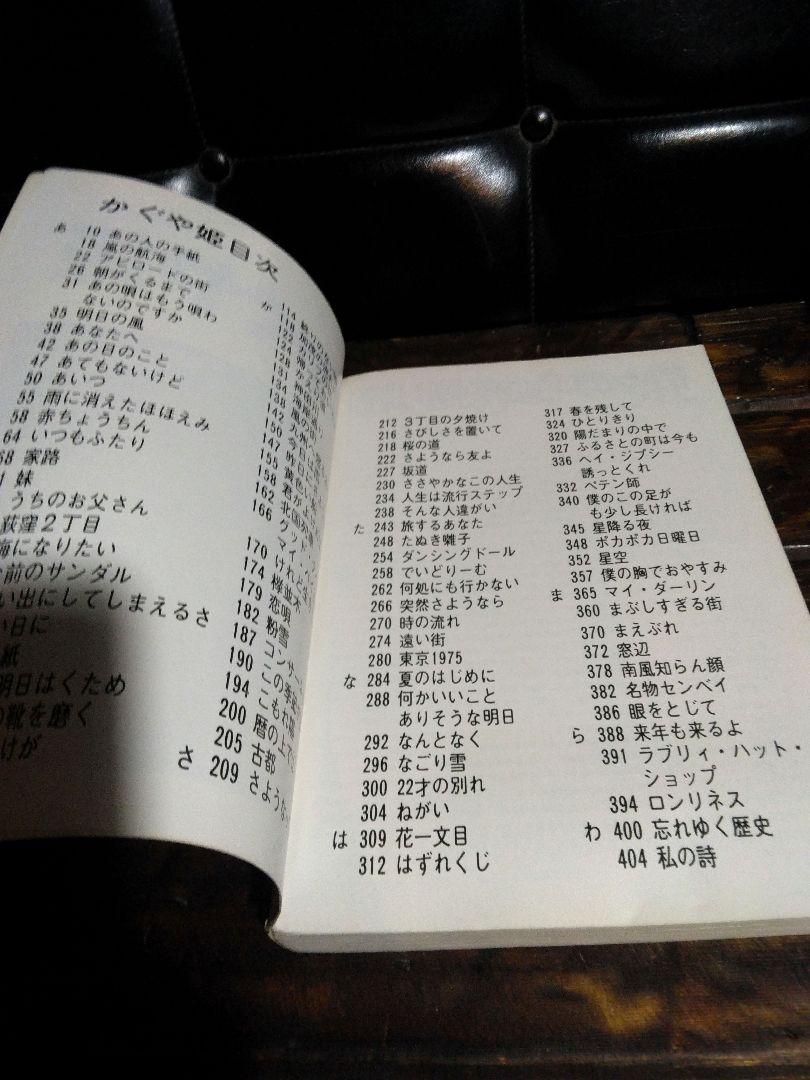 かぐや姫目次
あ 10 あの人の手紙
18 嵐の航海
22 アビーロードの街
26 朝がくるまで
31 あの唄はもう唄わ
ないのですか
35 明日の風
38 あなたへ
42 あの日のこと
47 あてもないけど
50 あいつ
55 雨に消えたほほえみ
58 赤ちょうちん
64 いつもふたり
68 家路
妹
うちのお父さん
荻窪2丁目
海になりたい
前のサンダル
い出にしてしまえるさ
い日に
紙
明日はくため
の靴を磨く
けが
か 114
118
122
124
128
131
134
138
142
147
150 今日
155
158
162
166 グッド
マイ
170 けれど生
174 欅並木
179 恋唄
182 粉雪
187 コンサー
190 この季節
194 こもれ陽
200 暦の上で
205 古都
さ 209 さような
212 3丁目の夕焼け
216 さびしさを置いて
218 桜の道
222 さようなら友よ
227 坂道
230 ささやかなこの人生
234 人生は流行ステップ
238 そんな人違がい
た 243 旅するあなた
248 たぬき囃子
254 ダンシングドール
258 でいどりーむ
262 何処にも行かない
266 突然さようなら
270 時の流れ
274 遠い街
280 東京1975
な 284 夏のはじめに
288 何かいいこと
ありそうな明日
292 なんとなく
296 なごり雪
300 22才の別れ
304 ねがい
は 309 花一文目
312 はずれくじ
317 春を残して
324 ひとりきり
320 陽だまりの中で
327 ふるさとの町は今も
336 ヘイ・ジプシー
誘っとくれ
332 ペテン師
340 僕のこの足が
も少し長ければ
345 星降る夜
348 ポカポカ日曜日
352 星空
357 僕の胸でおやすみ
ま 365 マイ・ダーリン
360 まぶしすぎる街
370 まえぶれ
372 窓辺
378 南風知らん顔
382 名物センベイ
386 眼をとじて
ら 388 来年も来るよ
391 ラブリィ・ハット・
ショップ
394 ロンリネス
わ 400 忘れゆく歴史
404 私の詩